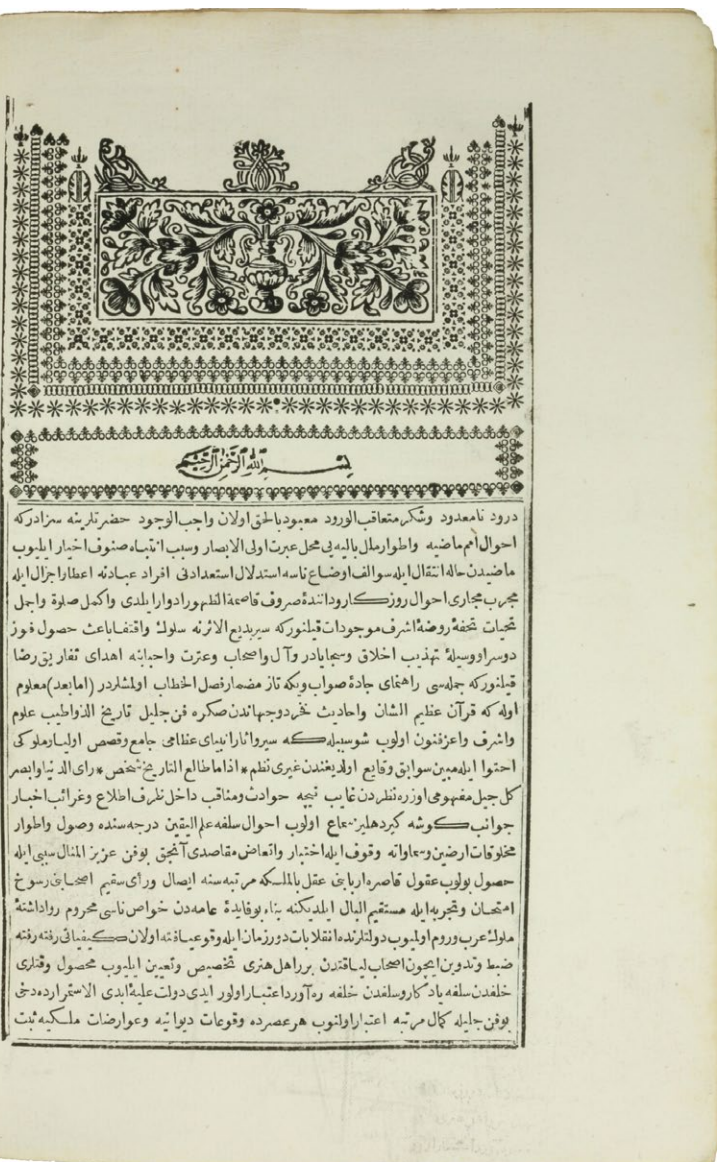 بسم الله الرحمن الرحيم
درود نامعدود وشكر متعاقب الورود معبود بالحق اولان واجب الوجود حضرتلرينه سزادركه
احوال امم ماضيه واطوار ملل باليه يى محل عبرت اولى الابصار وسبب انتباه صنوف اخيار ايليوب
ماضيدن حاله انتقال ايله سوالف اوضاع ناسه استدلال استعدادنى افراد عبادنه اعطار اجزال ايله
مجرب مجارى احوال روزكار وداننده صروف قاصمة الظهور ادوار ايلدى واكمل صلوة واجمل
تحيات تحفه روضه اشرف موجودات قيلنوركه سير بديع الاثرنه سلوك واقتفا باعث حصول فوز
دوسرا ووسيله تهذيب اخلاق وسجايادر وآل واصحاب وعترت واحبابنه اهداى تفاريق رضا
قيلنوركه جمله سى راهنماى جاده صواب ويكه تاز مضمار فصل الخطاب اولمشلردر (امابعد) معلوم
اوله كه قرآن عظيم الشان واحاديث فخر دوجهاندن صكره فن جليل تاريخ الذ واطيب علوم
واشرف واعز فنون اولوب شو سبيله كه سير وآثار انبياى عظامى جامع وقصص اوليا وملوكى
احتوا ايله مبين سوابق وقايع اولديغندن غيرى نظم * اذا ما طالع التاريخ شخص * راى الدنيا وابصر
كل جيل مفهومى اوزره نظردن غايب نيجه حوادث ومناقب داخل ظرف اطلاع وغرائب اخبار
جوانب كوشه كير دهليز سماع اولوب احوال سلفه علم اليقين درجه سنده وصول واطوار
مخلوقات ارضين وسماواته وقوف ايله اختبار واتعاض مقاصدى آنجق بوفن عزيز المنال سببى ايله
حصول بولوب عقول قاصره اربابنى عقل بالملكه مرتبه سنه ايصال وراى سقيم اصحابنى رسوخ
امتحان وتجربه ايله مستقيم البال ايلديكنه بناء بوفايده عامه دن خواص ناسى محروم روا داشته
ملوك عرب وروم اولميوب دولتلرنده انقلابات دور زمان ايله وقوعيافته اولان كيفياتى رفته رفته
ضبط وتدوين ايچون اصحاب لياقتدن بر اهل هنرى تخصيص وتعيين ايليوب محصول وقتلرى
خلفدن سلفه يادكار وسلفدن خلفه ره آورد اعتبار اولور ايدى دولت عليه ابدى الاستمرارده دخى
بوفن جليله كمال مرتبه اعتبار اولنوب هر عصرده وقوعات ديوانيه وعوارضات ملكيه ثبت